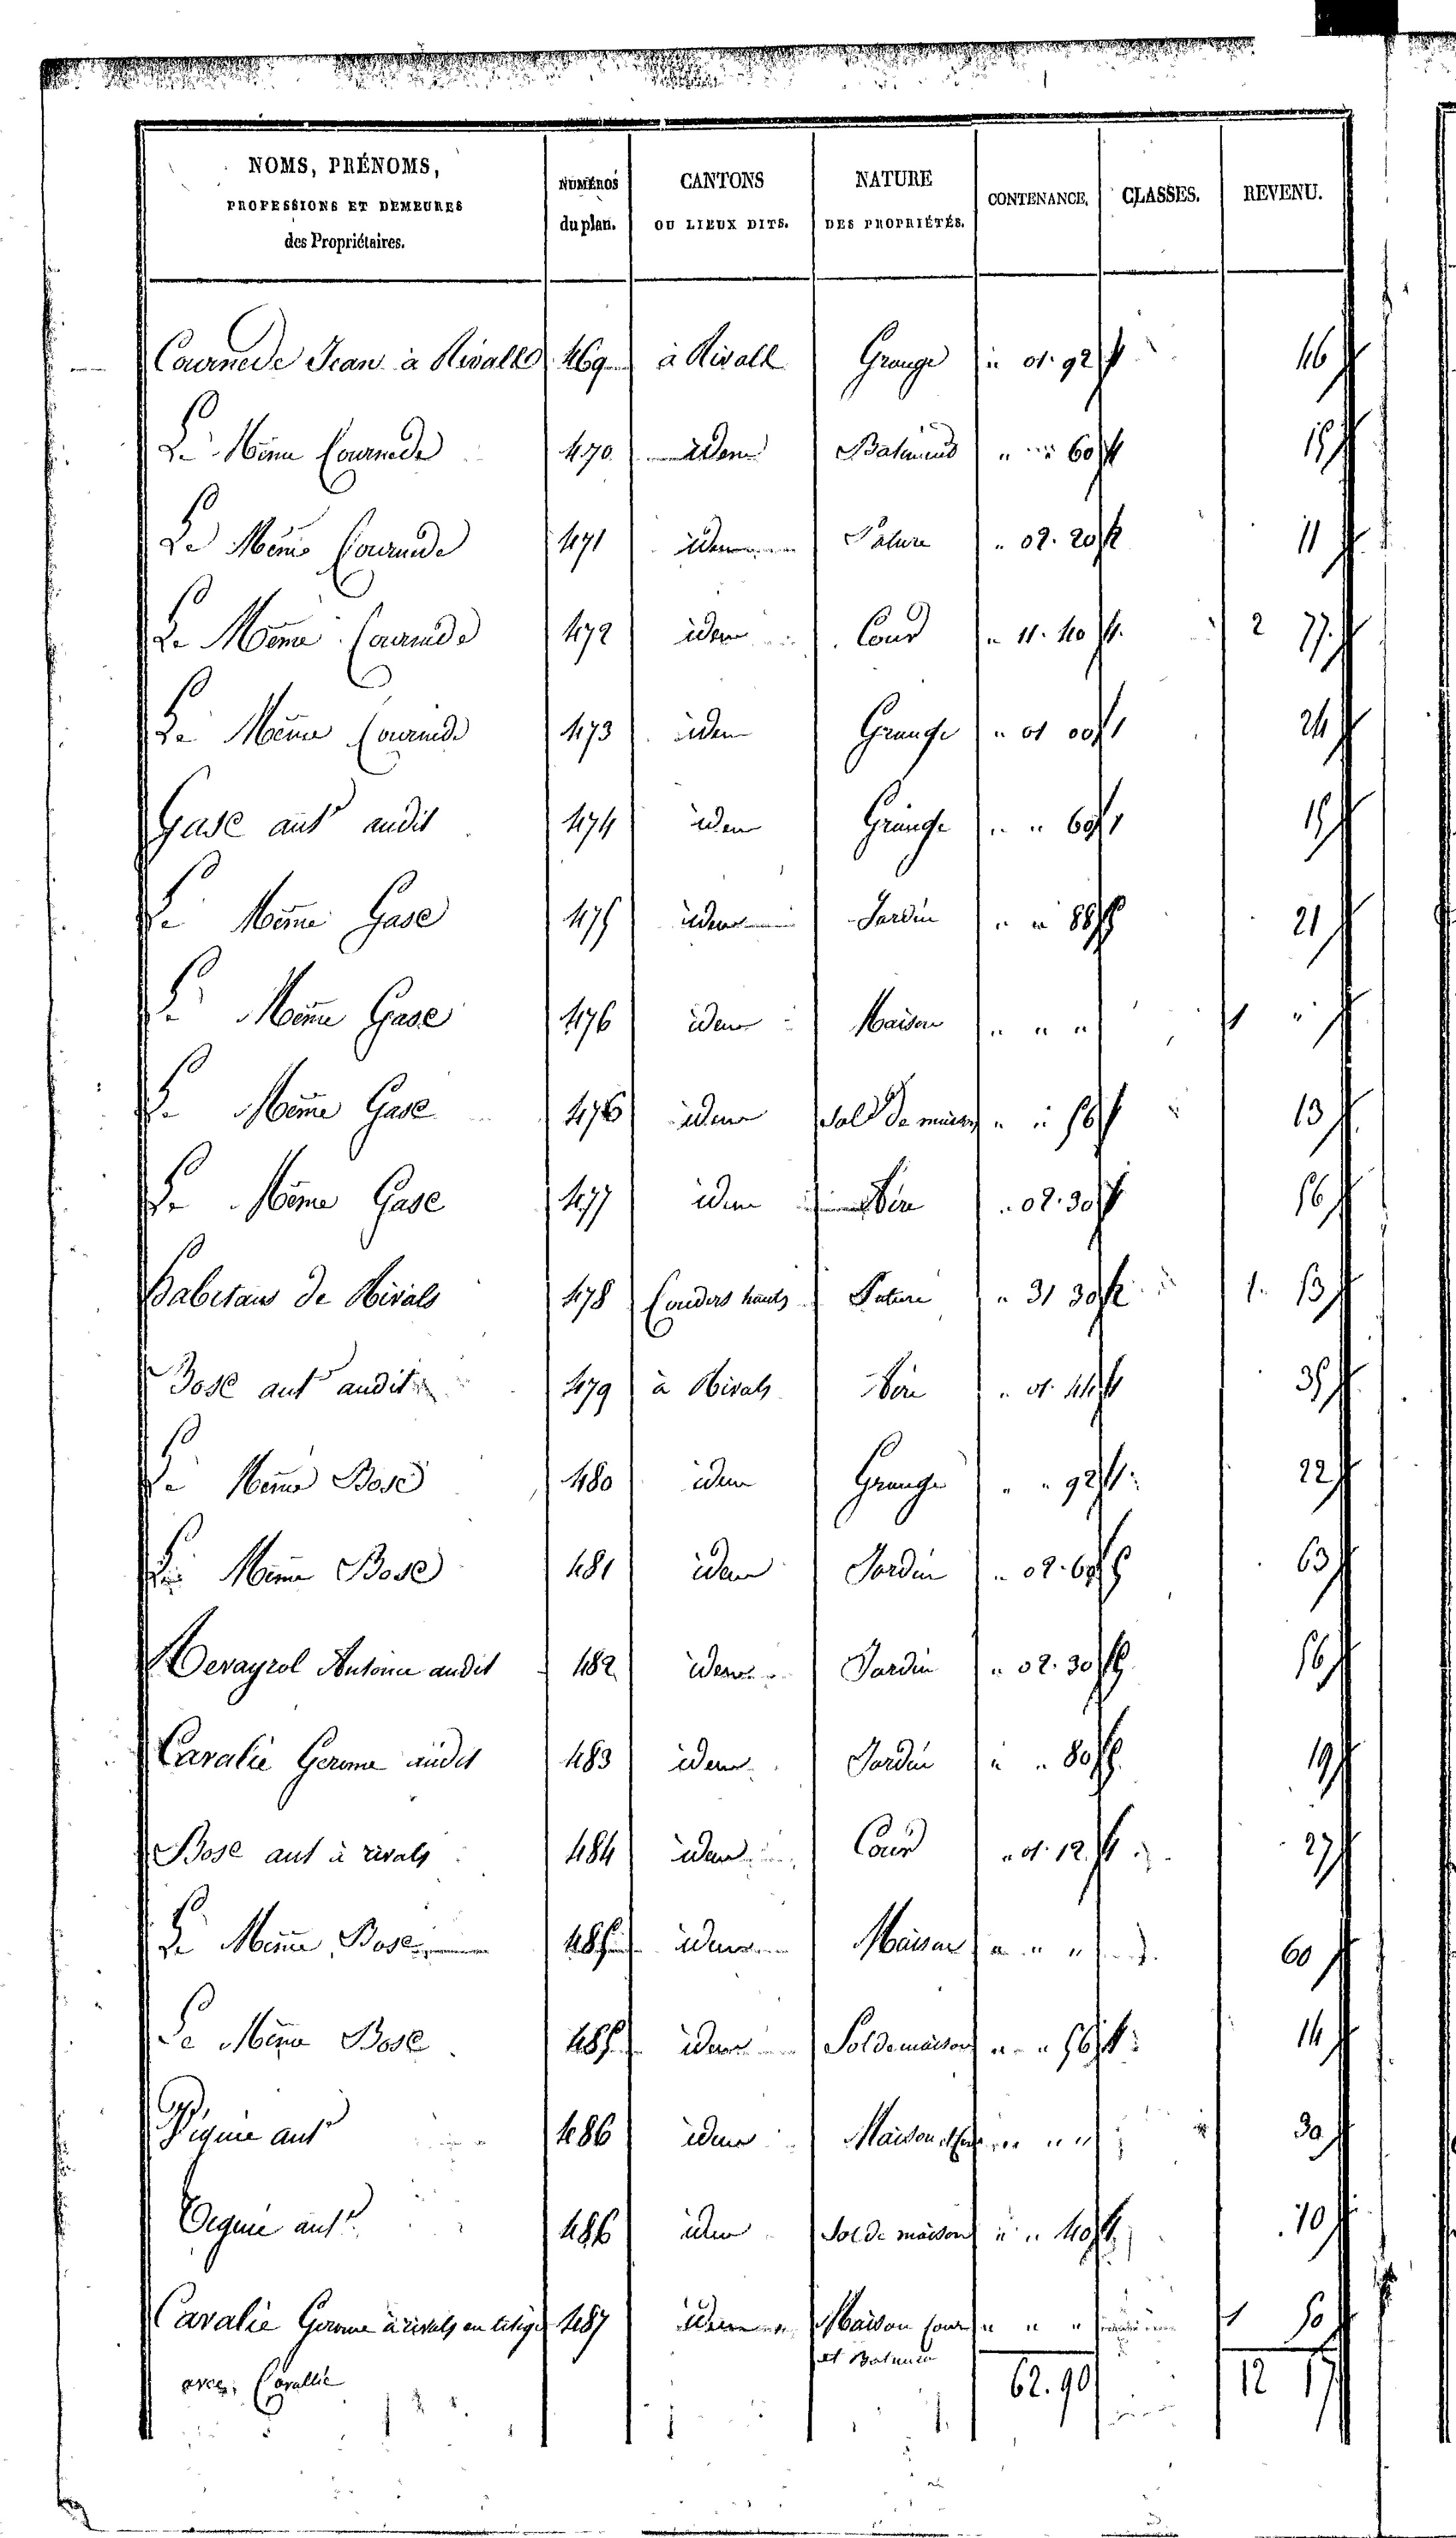 NOMS, PRÉNOMS, PROFESSIONS ET DEMEURES des Propriétaires. | NUMÉROS du plan. | CANTONS OU LIEUX DITS. | NATURE DES PROPRIÉTÉS. | CONTENANCE. | CLASSES. | REVENU.
Cournede Jean à Rivalls 469 à Rivall Grange " 01. 92 46
Le Même Cournede 470 idem Batiment " " 60 15
Le Même Cournede 471 idem Pature " 02. 20 11
Le Même Cournede 472 idem Cour " 11. 40 2 77
Le Même Cournede 473 idem Grange " 01 00 24
Gasc ant audit 474 idem Grange " " 60 15
Le Même Gasc 475 idem Jardin " " 88 21
Le Même Gasc 476 idem Maison " " " 1 "
Le Même Gasc 476 idem Sol de maison " " 56 13
Le Même Gasc 477 idem 02. 30 56
habitans de Rivals 478 hauts Pature " 31 30 1. 53
Bosc ant audit 479 à Rivals " 01. 44 35
Le Même Bosc 480 idem Grange " " 92 22
Le Même Bosc 481 idem Jardin " 02. 60 63
Antoine audit 482 idem Jardin " 02. 30 56
Cavalie Gerome audit 483 idem Jardin " " 80 19
Bosc ant à rivals 484 idem Cour " 01. 12 27
Le Même Bosc 485 idem Maison " " " 60
Le Même Bosc 485 idem Sol de maison " " 56 14
ant 486 idem Maison " " " 30
ant 486 idem Sol de maison " " 40 10
Cavalie Gerome à rivals en litige 487 idem Maison cour " " " 1 50
avec Cavallie et Batimen 62. 90 12 17